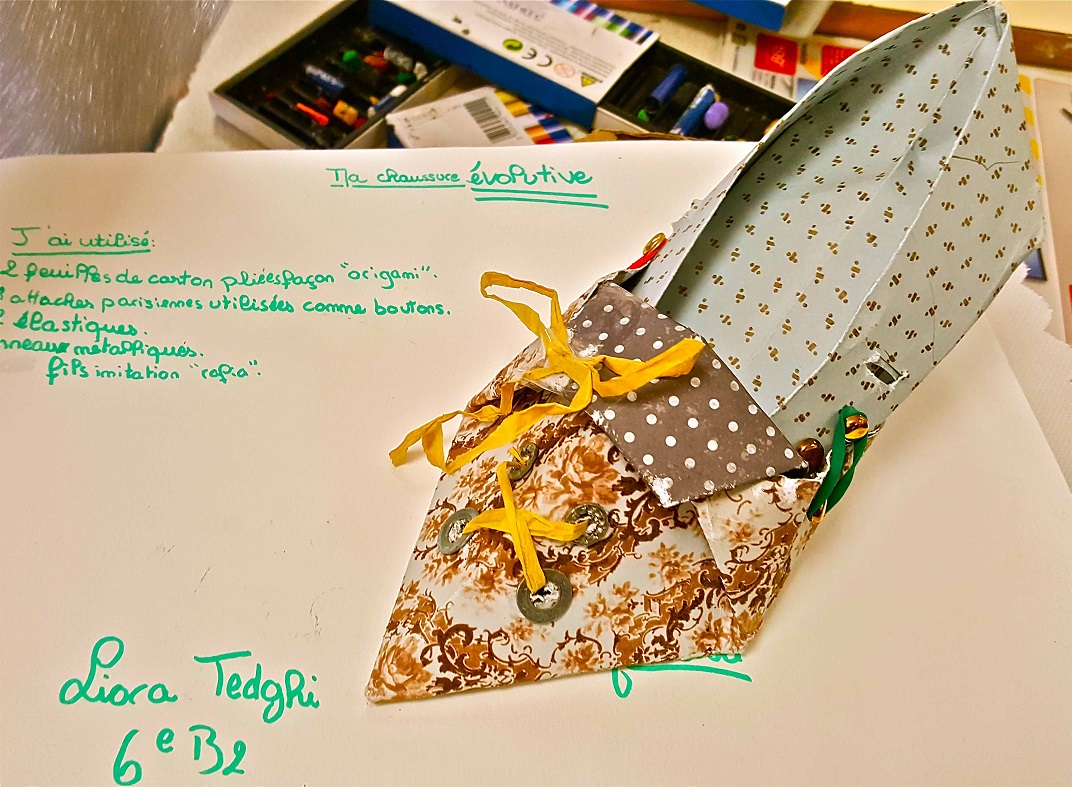 Ma chaussure évolutive
J'ai utilisé:
2 feuilles de carton pliées façon "origami".
attaches parisiennes utilisées comme boutons.
élastiques.
métalliques.
fils imitation "rafia".
Liora Tedghi
6e B2
CE